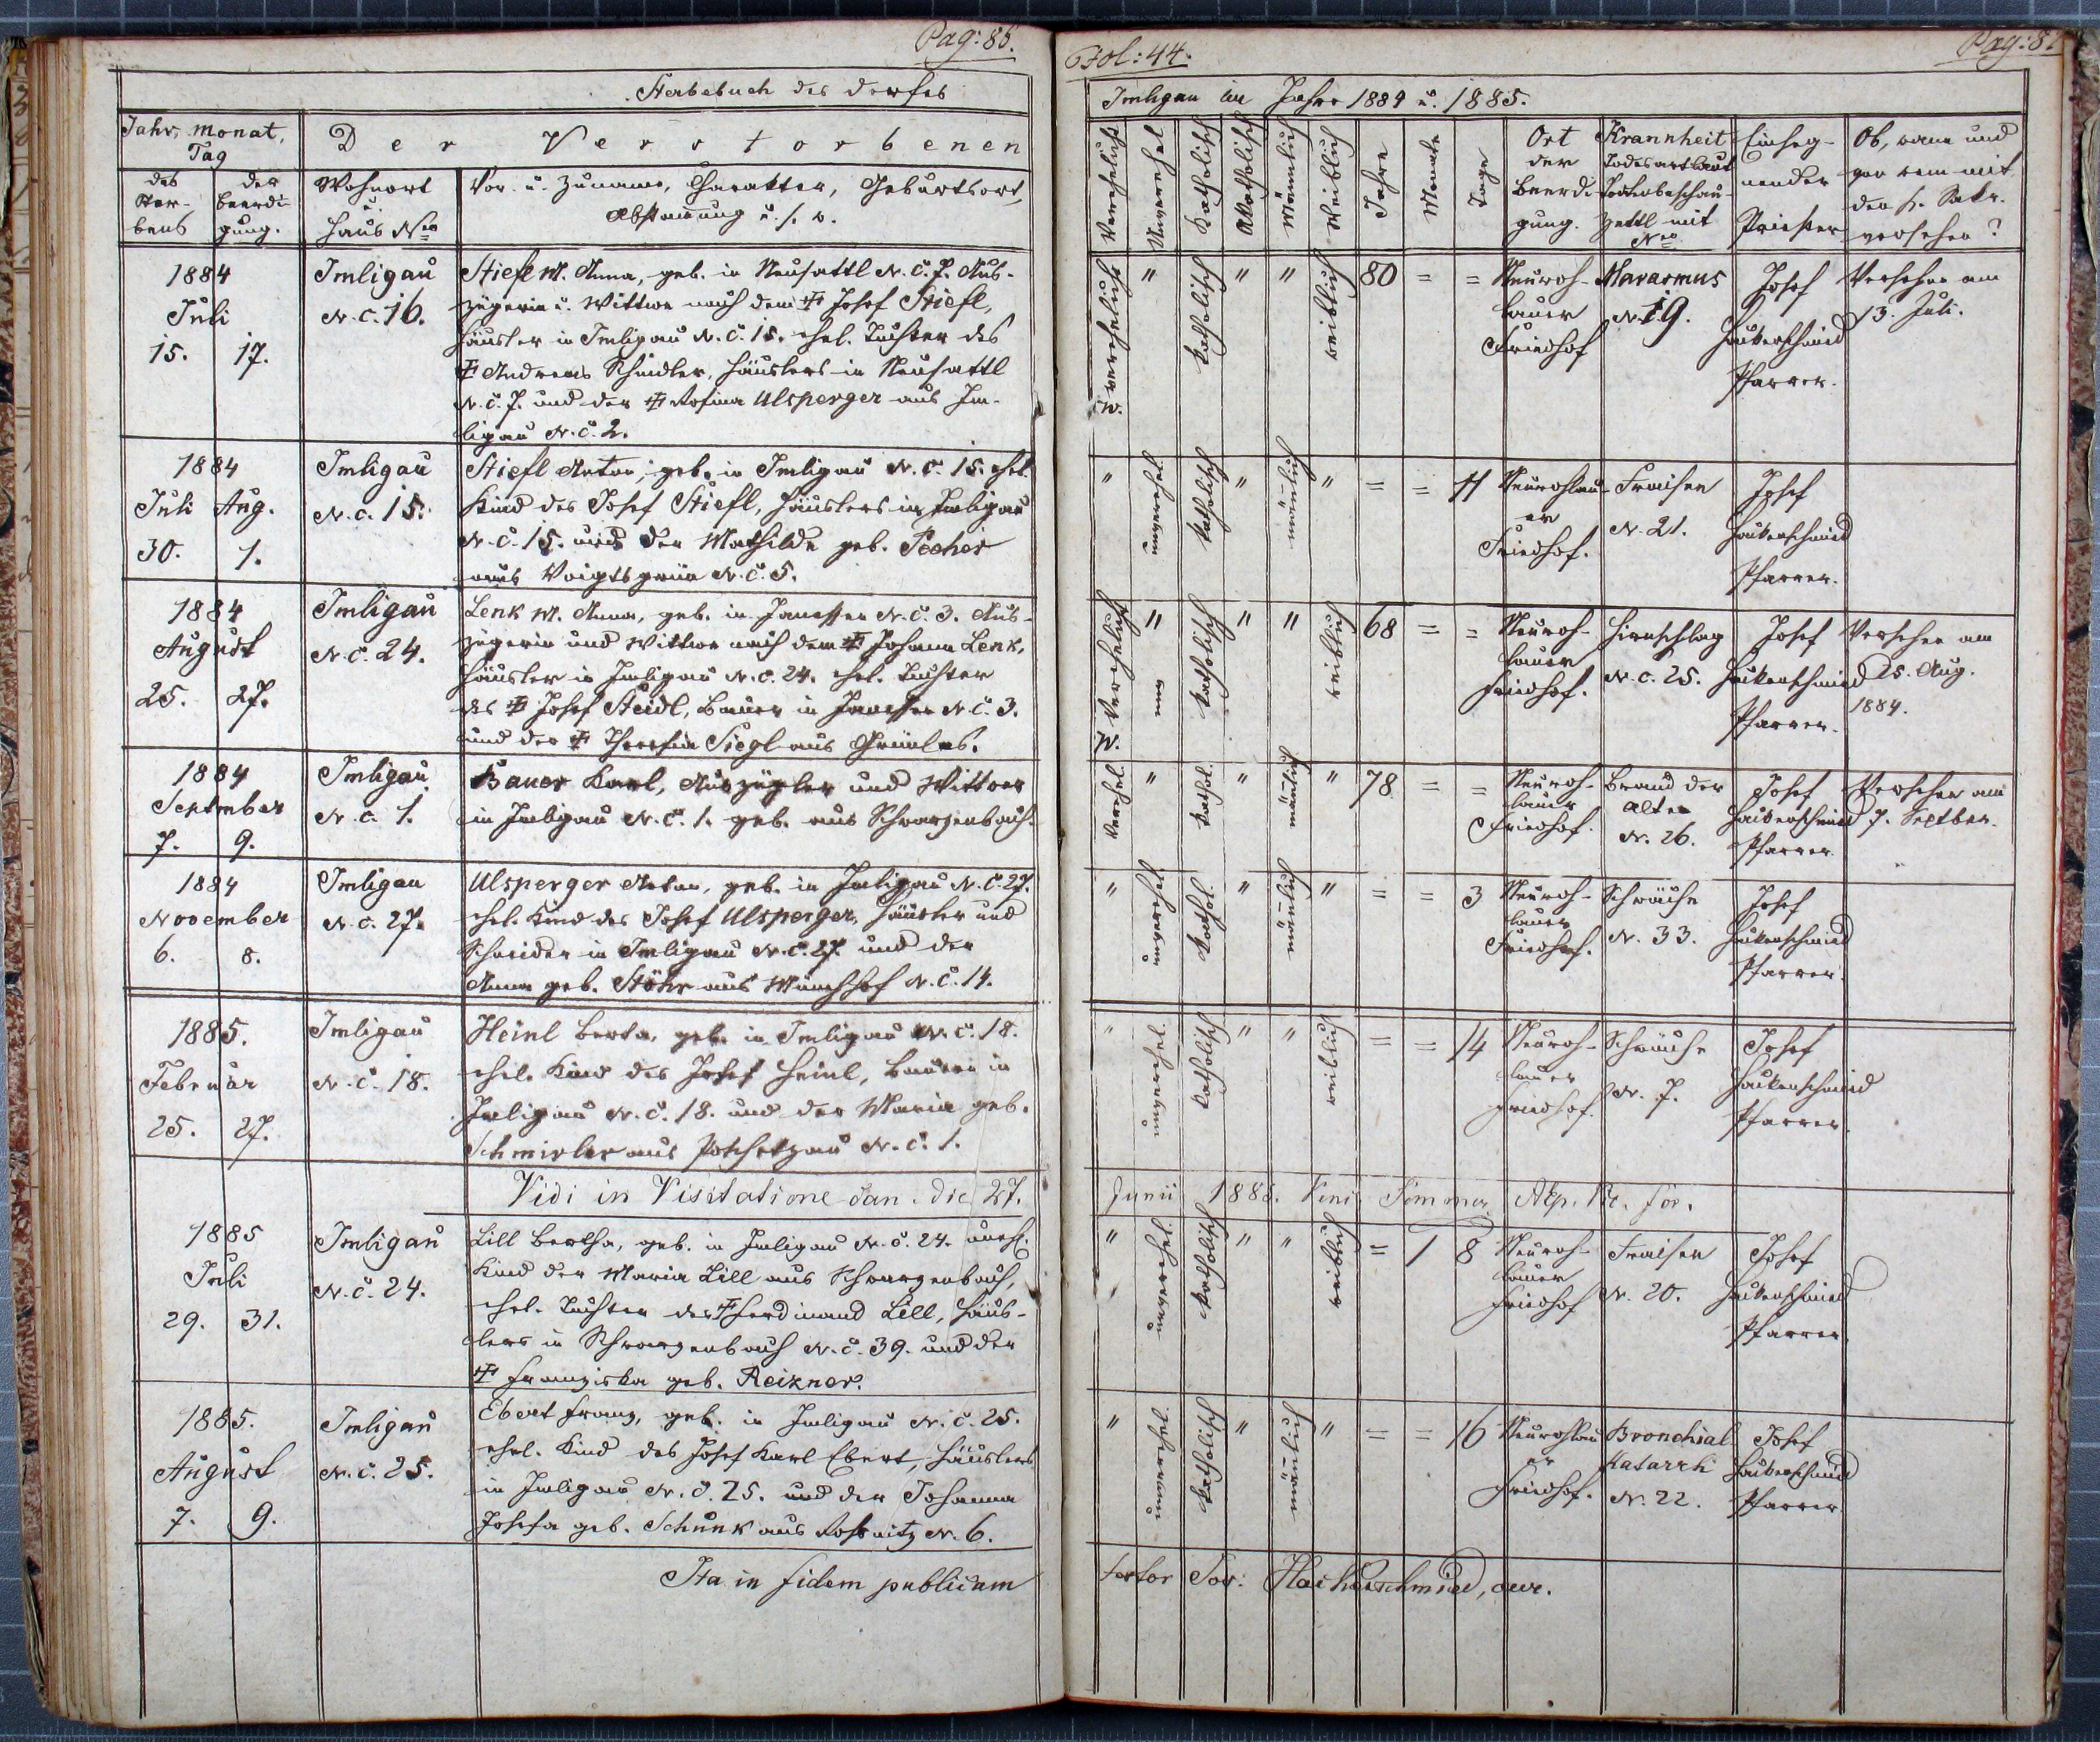 Pag: 86.
Sterbebuch des Dorfes
Jahr, Monat,
Tag
Der Verstorbenen
des
Ster-
bens
der
Beerdi-
gung.
Wohnort
u.
Haus Nro
Vor- u. Zuname, Charakter, Geburtsort,
Abstammung u. s. w.
1884
Juli
15. 17.
Imligau
N.C. 16.
Stiefl M. Anna, geb. in Neusattl N.C. 7. Aus-
zügerin u. Wittwe nach dem ‡ Josef Stiefl,
Häusler in Imligau N.C. 15. ehel. Tochter des
‡ Andreas Schindler, Häuslers in Neusattl
N.C. 7. und der ‡ Rosina Ulsperger aus Im-
ligau N.C. 2.
1884
Juli Aug.
30. 1.
Imligau
N.C. 15.
Stiefl Anton, geb. in Imligau N.C. 15. ehel.
Kind des Josef Stiefl, Häuslers in Imligau
N.C. 15. und der Mathilde geb. Pecher
aus Voigtsgrün N.C. 5.
1884
August
25. 27.
Imligau
N.C. 24.
Lenk M. Anna, geb. in Janessen N.C. 3. Aus-
zügerin und Wittwe nach dem ‡ Johann Lenk,
Häusler in Imligau N.C. 24. ehel. Tochter
des ‡ Josef Steidl, Bauer in Janessen N.C. 3.
und der ‡ Theresia Siegl aus Grünlas.
1884
September
7. 9.
Imligau
N.C. 1.
Bauer Karl, Auszügler und Wittwer
in Imligau N.C. 1. geb. aus Schwarzenbach.
1884
November
6. 8.
Imligau
N.C. 27.
Ulsperger Anton, geb. in Imligau N.C. 27.
ehel. Kind des Josef Ulsperger, Häusler und
Schneider in Imligau N.C. 27. und der
Anna geb. Stöhr aus Münchhof N.C. 14.
1885.
Februar
25. 27.
Imligau
N.C. 18.
Heinl Berta, geb. in Imligau N.C. 18.
ehel. Kind des Josef Heinl, Bauern in
Imligau N.C. 18. und der Maria geb.
Schmirler aus Potschetzgau N.C. 1.
Vidi in Visitatione can. die 27.
1885
Juli
29. 31.
Imligau
N.C. 24.
Lill Bertha, geb. in Imligau N.C. 24. uneh.
Kind der Maria Lill aus Schwarzenbach,
ehel. Tochter des ‡ Ferdinand Lill, Häus-
lers in Schwarzenbach N.C. 39. und der
‡ Franziska geb. Reizner.
1885.
August
7. 9.
Imligau
N.C. 25.
Ebert Franz, geb. in Imligau N.C. 25.
ehel. Kind des Josef Karl Ebert, Häuslers
in Imligau N.C. 25. und der Johanna
Josefa geb. Schunk aus Rossnitz N. 6.
Ita in fidem publicam
Fol: 44.
Imligau im Jahre 1884 u. 1885.
Verehelicht
Unverehel
Katholisch
Akatholisch
Männlich
Weiblich
Jahre
Monate
Tage
Ort
der
Beerdi-
gung.
Krannheit
Todesart laut
Todtenbeschau-
zettl mit
Nro
Einseg-
nender
Priester
Ob, wann und
von wem mit
den h. Sakr.
versehen?
W. verehelicht " katholisch " " weiblich 80 = =
Neuroh-
lauer
Friedhof
Marasmus
N. 19.
Josef
Haikerschmied
Pfarrer.
Versehen am
13. Juli.
" unverehel. katholisch " mänlich " = = 11
Neurohlau-
er
Friedhof.
Fraisen
N. 21.
Josef
Haikerschmied
Pfarrer.
W. Verehelicht " katholisch " " weiblich 68 = =
Neuroh-
lauer
Friedhof.
Hirnschlag
N.C. 25.
Josef
Haikerschmied
Pfarrer.
Versehen am
25. Aug.
1884.
Verehel. " kathol. " mänlich " 78 = =
Neuroh-
lauer
Friedhof.
Brand der
Alten
N. 26.
Josef
Haikerschmied
Pfarrer.
Versehen am
7. Septber.
" unverehel. kathol. " mänlich " = = 3
Neuroh-
lauer
Friedhof.
Schwäche
N. 33.
Josef
Haikerschmied
Pfarrer.
" unverehel. katholisch " " weiblich = = 14
Neuroh-
lauer
Friedhof.
Schwäche
N. 7.
Josef
Haikerschmied
Pfarrer.
Junii 1885.
" unverehel. katholisch " " weiblich = 1 8
Neuroh-
lauer
Friedhof
Fraisen
N. 20.
Josef
Haikerschmied
Pfarrer.
" unverehel. katholisch " mänlich " = = 16
Neurohlau
er
Friedhof.
Bronchial
Katarrh
N. 22.
Josef
Haikerschmied
Pfarrer.
testor Jos: Haikerschmied, cur.